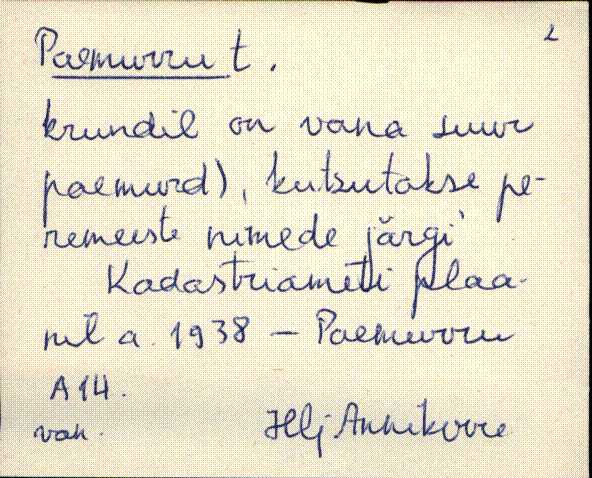 2
Paemurru t.
krundil on vana suur
paemurd), kutsutakse pe-
remeeste nimede järgi
Kadastriameti plaa-
nil a. 1938 - Paemurru
A14.
vah.
Hlj Annikorre